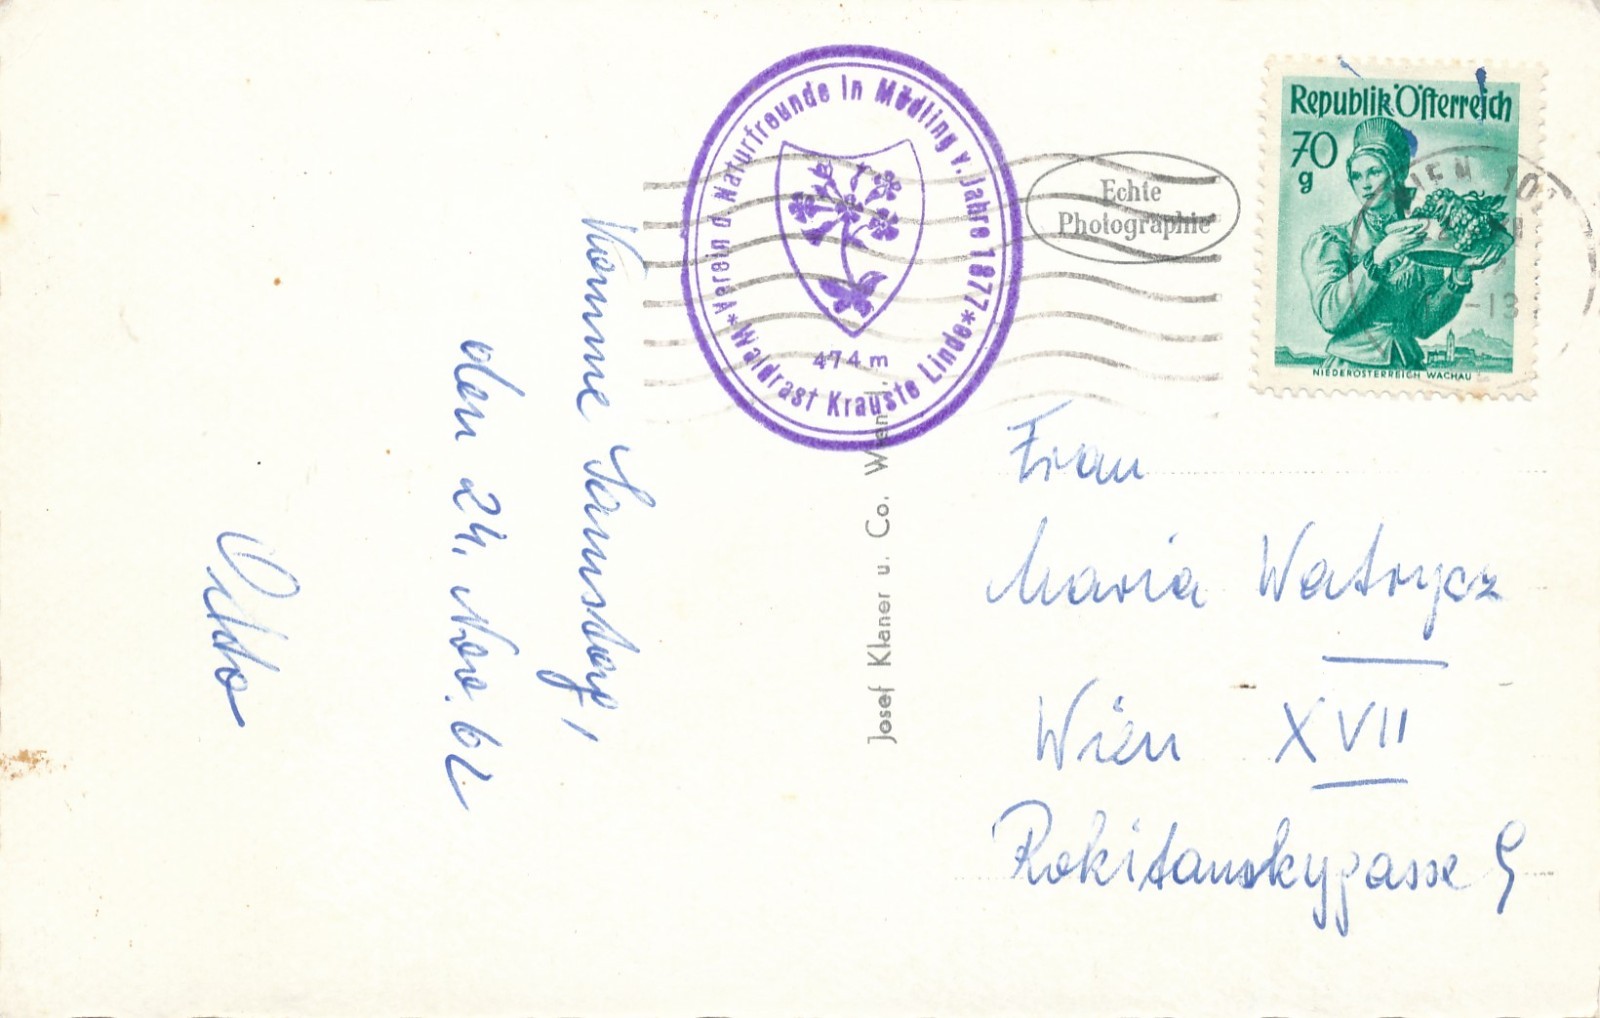 Komme Samstag,
den 24. Nov. 62
Otto
Verein d. Naturfreunde in Mödling v. Jahre 1877
*Waldrast Krauste Linde*
474 m
Echte
Photographie
Republik Österreich
70
g
NIEDERÖSTERREICH WACHAU
WIEN 101
-13
Josef Klaner u. Co. Wien
Frau
Maria Watrycz
Wien XVII
Rokitanskygasse 9